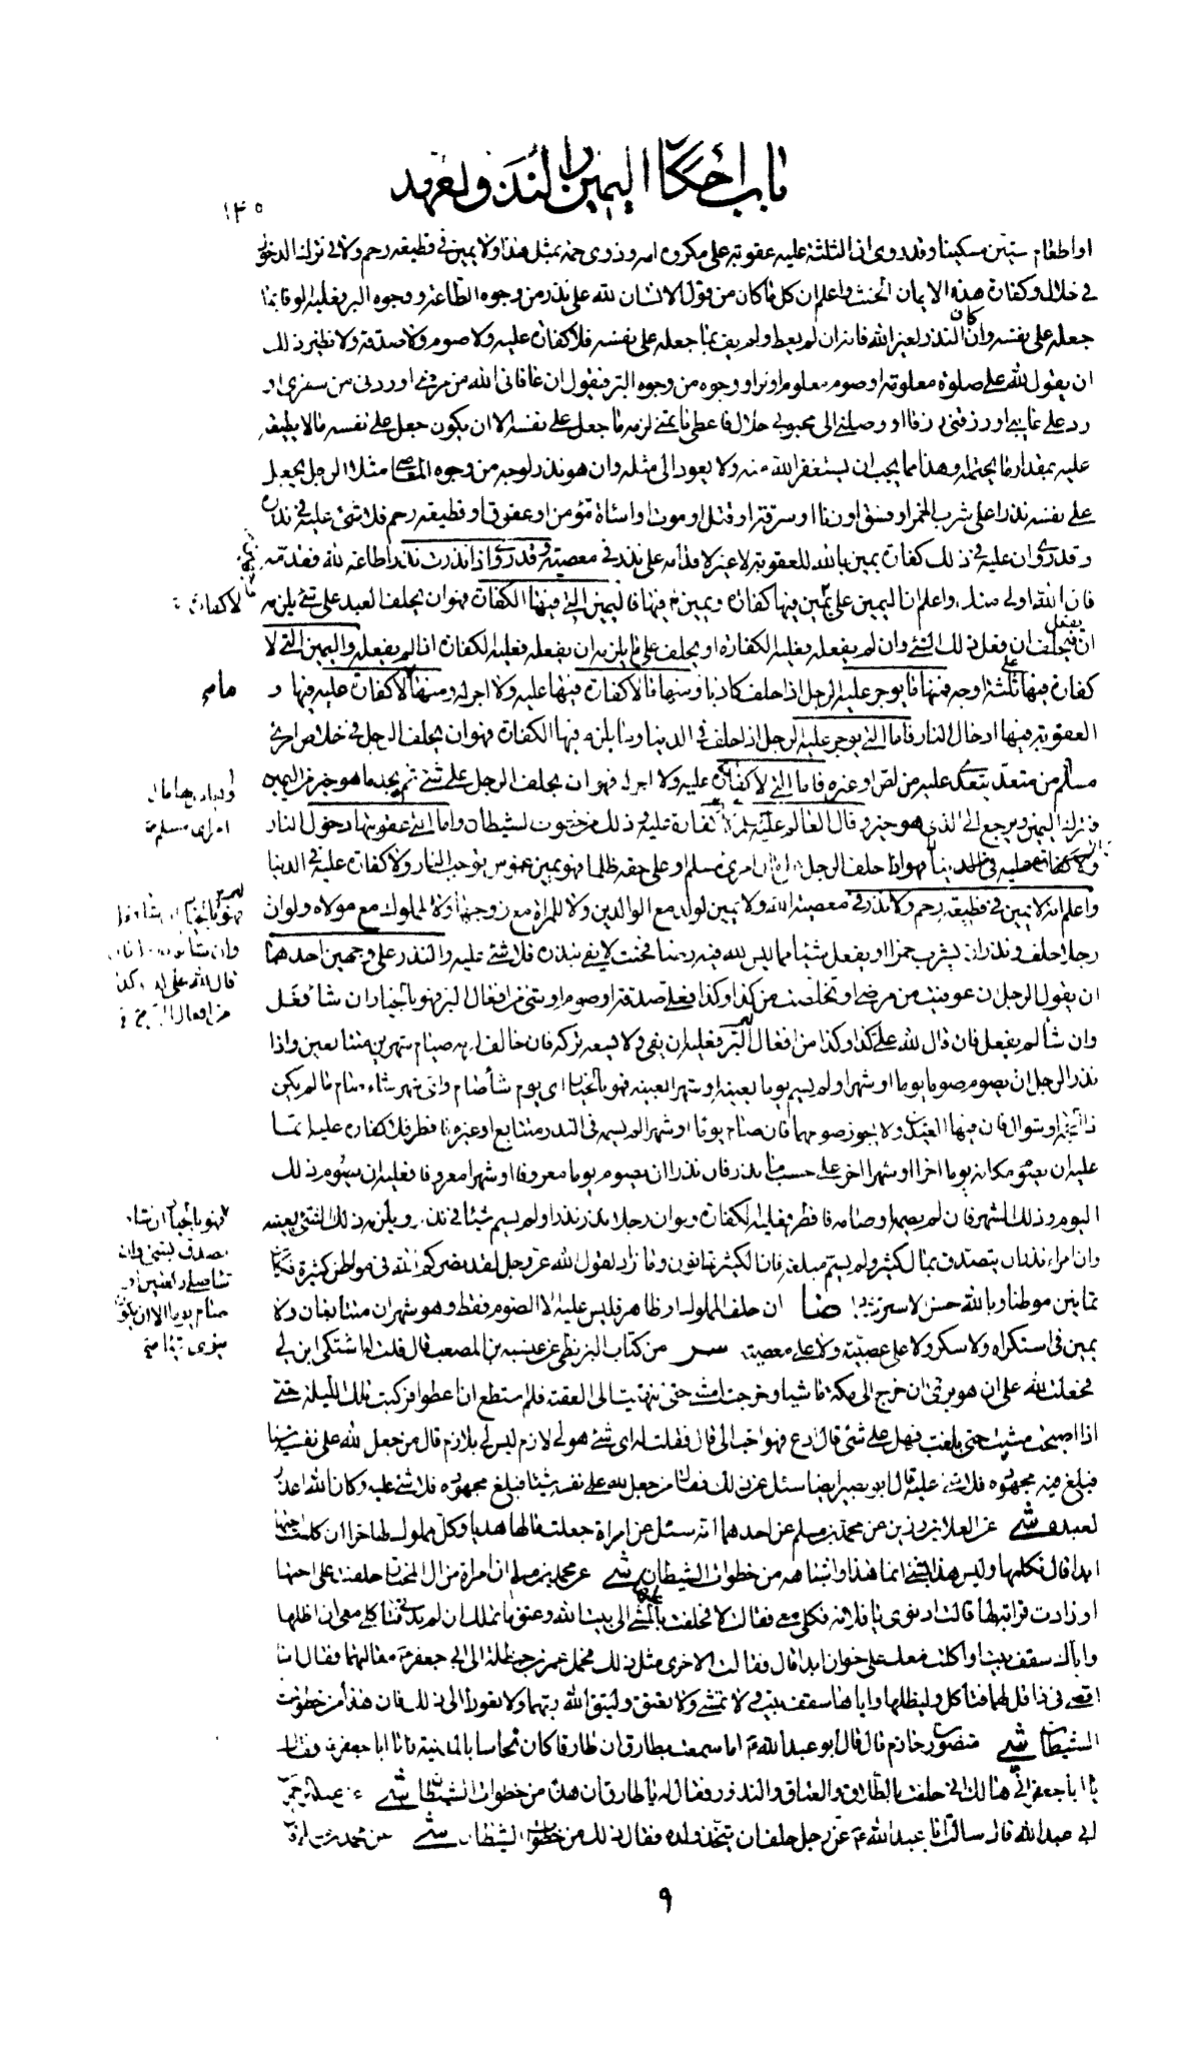 باب احكام اليمين والنذر والعهد
١٤٥
او اطعام ستين مسكينا وقد روى ان الثلثة عليه عقوبة على مكروه امه وذوى رحمه بمثل هذا ولا يمين فى قطيعة رحم ولا فى ترك الدخول
فى حلال وكفارة هذه الايمان الحنث واعلم ان كل ما كان من قول الانسان لله على نذر من وجوه الطاعة ووجوه البر فعليه الوفا بما
جعله على نفسه وان كان النذر لغير الله فانه ان لم يعط ولم يف بما جعله على نفسه فلا كفارة عليه ولا صوم ولا صدقة ولا نظير ذلك
ان يقول لله على صلوة معلومة او صوم معلوم او بر او وجوه من وجوه البر فيقول ان عافانى الله من مرضى او ردنى من سفرى او
رد على غايبى او رزقنى رزقا او وصلنى الى محبوبى حلال فاعطى ما تمنى لزمه ما جعل على نفسه الا ان يكون جعل على نفسه ما لا يطيقه
عليه بمقدار ما يحتمله وهذا مما يجب ان يستغفر الله منه ولا يعود الى مثله وان هو نذر لوجه من وجوه المعاصى مثل الرجل يجعل
على نفسه نذرا على شرب الخمر او فسق او زنا او سرقة او قتل او موت او اساة مؤمن او عقوق او قطيعة رحم فلا شئ عليه فى نذره
وقد روى ان عليه فى ذلك كفارة يمين بالله للعقوبة لا غير لاقدامه على نذر فى معصية وقد روى اذا نذرت نذر اطاعة لله فقدمه
فان الله اولى منك واعلم ان اليمين على يمين فيها كفارة ويمين لا فيها فاليمين التى فيها الكفارة فهو ان يحلف العبد على شئ يلزمه لا كفارة
ان يفعل فيحلف ان فعل ذلك الشئ وان لم يفعله فعليه الكفارة او يحلف على ما يلزمه ان يفعله فعليه الكفارة اذا لم يفعله واليمين التى لا
كفارة فيها على ثلثة اوجه فمنها ما يوجر عليه الرجل اذا حلف كاذبا ومنها ما لا كفارة فيها عليه ولا اجر له ومنها لا كفارة عليه فيها و
العقوبة فيها ادخال النار فاما التى يوجر عليه الرجل اذا حلف فى الدنيا وما يلزمه فيها الكفارة فهو ان يحلف الرجل فى خلاص امرئ
مسلم من متعد يتعدى عليه من لص او غيره فاما التى لا كفارة عليه ولا اجر له فهو ان يحلف الرجل على شئ ثم يجد ما هو خير من اليمين
فترك اليمين ويرجع الى الذى هو خير وقال العالم عليه السلام لا كفارة عليه وذلك من خطوات الشيطان واما التى عقوبتها دخول النار
ولا كفارة عليه فى الدنيا فهو اذا حلف الرجل على مال امرئ مسلم او على حقه ظلما فهو يمين غموس يوجب النار ولا كفارة عليه فى الدنيا
واعلم انه لا يمين فى قطيعة رحم ولا نذر فى معصية الله ولا يمين لولد مع الوالدين ولا للمراة مع زوجها ولا للمملوك مع مولاه ولو ان
رجلا حلف ونذر ان يشرب خمرا او يفعل شيئا مما ليس لله فيه رضا فحنث لا يفى بنذره فلا شئ عليه والنذر على وجهين احدهما
ان يقول الرجل ان عوفيت من مرضى او تخلصت من كذا وكذا فعلى صدقة او صوم او شئ من افعال البر فهو بالخيار ان شا فعل
وان شا لم يفعل فان قال لله على كذا وكذا من افعال البر فعليه ان يفى ولا يسعه تركه فان خالف لزمه صيام شهرين متتابعين واذا
نذر الرجل ان يصوم صوما يوما او شهرا ولم يسم يوما بعينه او شهرا بعينه فهو بالخيار اى يوم شأ صام واى شهر شاء صام ما لم يكن
ذا الحجة او شوال فان فيها العيدين ولا يجوز صومهما فان صام يوما او شهرا لم يسمه فى النذر متتابع او غيره فافطر فلا كفارة عليه انما
عليه ان يصوم مكانه يوما اخرا او شهرا اخر على حسب ما نذر فان نذر ان يصوم يوما معروفا او شهرا معروفا فعليه ان يصوم ذلك
اليوم وذلك الشهر فان لم يصمه او صامه فافطر فعليه الكفارة ولو ان رجلا نذر نذرا ولم يسم شيئا فى نذره ويلزمه ذلك الشئ بعينه
وان امراء نذر ان يتصدق بمال كثير ولم يسم مبلغه فان الكثير ثمانون وما زاد لقول الله عز وجل لقد نصركم الله فى مواطن كثيرة فكانت
ثمانين موطنا وبالله حسن الاسترشاد ضا ان حلف المملوك او ظاهر فليس عليه الا الصوم فقط وهو شهران متتابعان ولا
يمين فى استكراه ولا سكر ولا على عصبية ولا على معصية سر من كتاب البزنطى عن عنبسة بن المصعب قال قلت له اشتكى ابن لى
فجعلت لله على ان هو برئ ان اخرج الى مكة ماشيا وخرجت امشى حتى انتهيت الى العقبة فلم استطع ان اخطو فركبت تلك الليلة حتى
اذا اصبحت مشيت حتى بلغت فهل على شئ قال اذبح فهو احب الى قال فقلت له اى شئ هو لى لازم ليس لى بلازم قال من جعل لله على نفسه شيئا
فبلغ فيه مجهوده فلا شئ عليه قال ابو بصير ايضا سئل عن ذلك فقال من جعل لله على نفسه شيئا فبلغ مجهوده فلا شئ عليه وكان الله اعذر
لعبده شى عن العلا بن رزين عن محمد بن مسلم عن احدهما انه سئل عن امراة جعلت مالها هديا وكل مملوك لها حرا ان كلمت اختها
ابدا قال تكلمها وليس هذا بشئ انما هذا واشباهه من خطوات الشيطان شى عن محمد بن مسلم ان امراة من ال المختار حلفت على اختها
او زادت قرابة لها قالت ادنوى يا فلانة فكلى معى فقالت لا فحلفت بالمشى الى بيت الله وعتق ما تملك ان لم تدنى فتاكلى معى ان اظلها
واياك سقف بيت او اكلت معك على خوان ابدا قال فقالت الاخرى مثل ذلك فحمل عمر بن حنظلة الى ابى جعفر ع مقالتهما فقال انا
اقضى فى ذا قل لهما فلتاكل وليظلها واياها سقف بيت ولا تمشى ولا تعتق وليتق الله ربهما ولا تعودا الى ذلك فان هذا من خطوات
الشيطان شى منصور بن حازم قال قال ابو عبد الله ع اما سمعت بطارق ان طارقا كان نخاسا بالمدينة فاتا ابا جعفر ع فقال
يا ابا جعفر انى هالك انى حلفت بالطلاق والعتاق والنذور فقال له يا طارق ان هذه من خطوات الشيطان شى عن عبد الرحمن بن
ابى عبد الله قال سالت ابا عبد الله ع عن رجل حلف ان ينحر ولده فقال ذلك من خطوات الشيطان شى عن محمد بن مسلم
٩